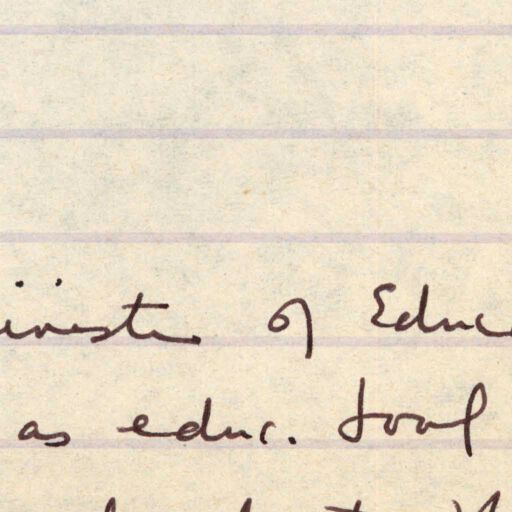 inister of Educ
as educ. tool